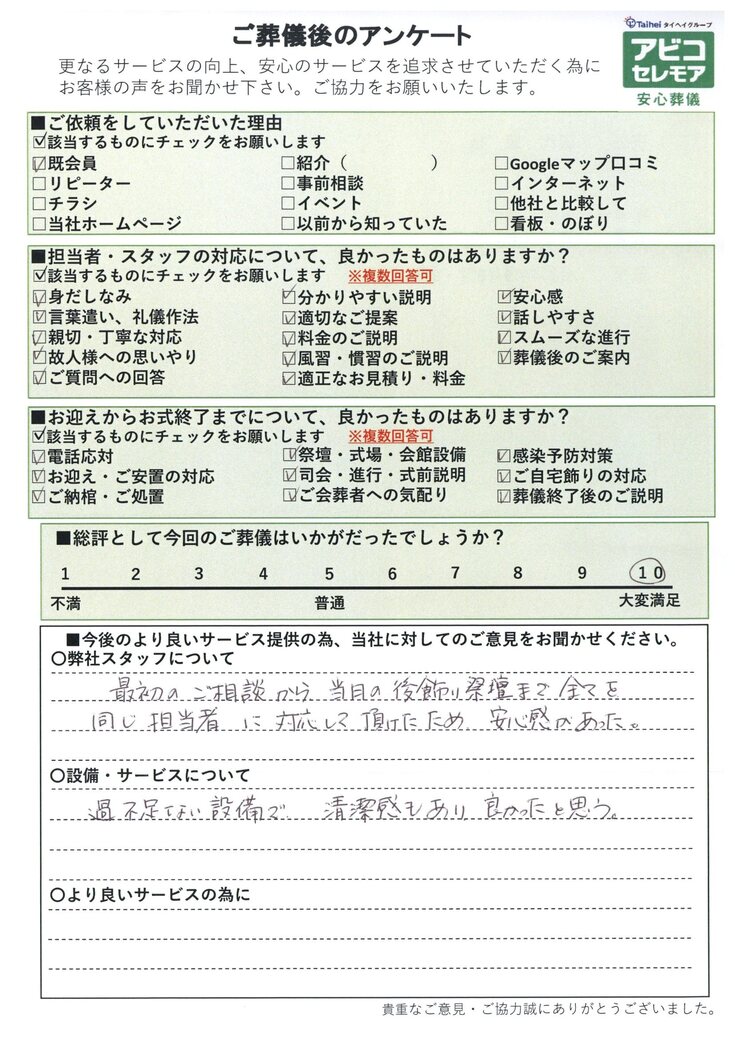 ご葬儀後のアンケート
Taihei タイヘイグループ
アビコ
セレモア
安心葬儀
更なるサービスの向上、安心のサービスを追求させていただく為に
お客様の声をお聞かせ下さい。ご協力をお願いいたします。
■ご依頼をしていただいた理由
☑該当するものにチェックをお願いします
☑既会員 □紹介（ ） □Googleマップ口コミ
□リピーター □事前相談 □インターネット
□チラシ □イベント □他社と比較して
□当社ホームページ □以前から知っていた □看板・のぼり
■担当者・スタッフの対応について、良かったものはありますか？
☑該当するものにチェックをお願いします ※複数回答可
☑身だしなみ ☑分かりやすい説明 ☑安心感
☑言葉遣い、礼儀作法 ☑適切なご提案 ☑話しやすさ
☑親切・丁寧な対応 ☑料金のご説明 ☑スムーズな進行
☑故人様への思いやり ☑風習・慣習のご説明 ☑葬儀後のご案内
☑ご質問への回答 ☑適正なお見積り・料金
■お迎えからお式終了までについて、良かったものはありますか？
☑該当するものにチェックをお願いします ※複数回答可
☑電話応対 ☑祭壇・式場・会館設備 ☑感染予防対策
☑お迎え・ご安置の対応 ☑司会・進行・式前説明 ☑ご自宅飾りの対応
☑ご納棺・ご処置 ☑ご会葬者への気配り ☑葬儀終了後のご説明
■総評として今回のご葬儀はいかがだったでしょうか？
1 2 3 4 5 6 7 8 9 10
不満 普通 大変満足
■今後のより良いサービス提供の為、当社に対してのご意見をお聞かせください。
〇弊社スタッフについて
最初のご相談から当日の後飾り祭壇まで全てを
同じ担当者に対応して頂けたため安心感があった。
〇設備・サービスについて
過不足ない設備で清潔感もあり良かったと思う。
〇より良いサービスの為に
貴重なご意見・ご協力誠にありがとうございました。